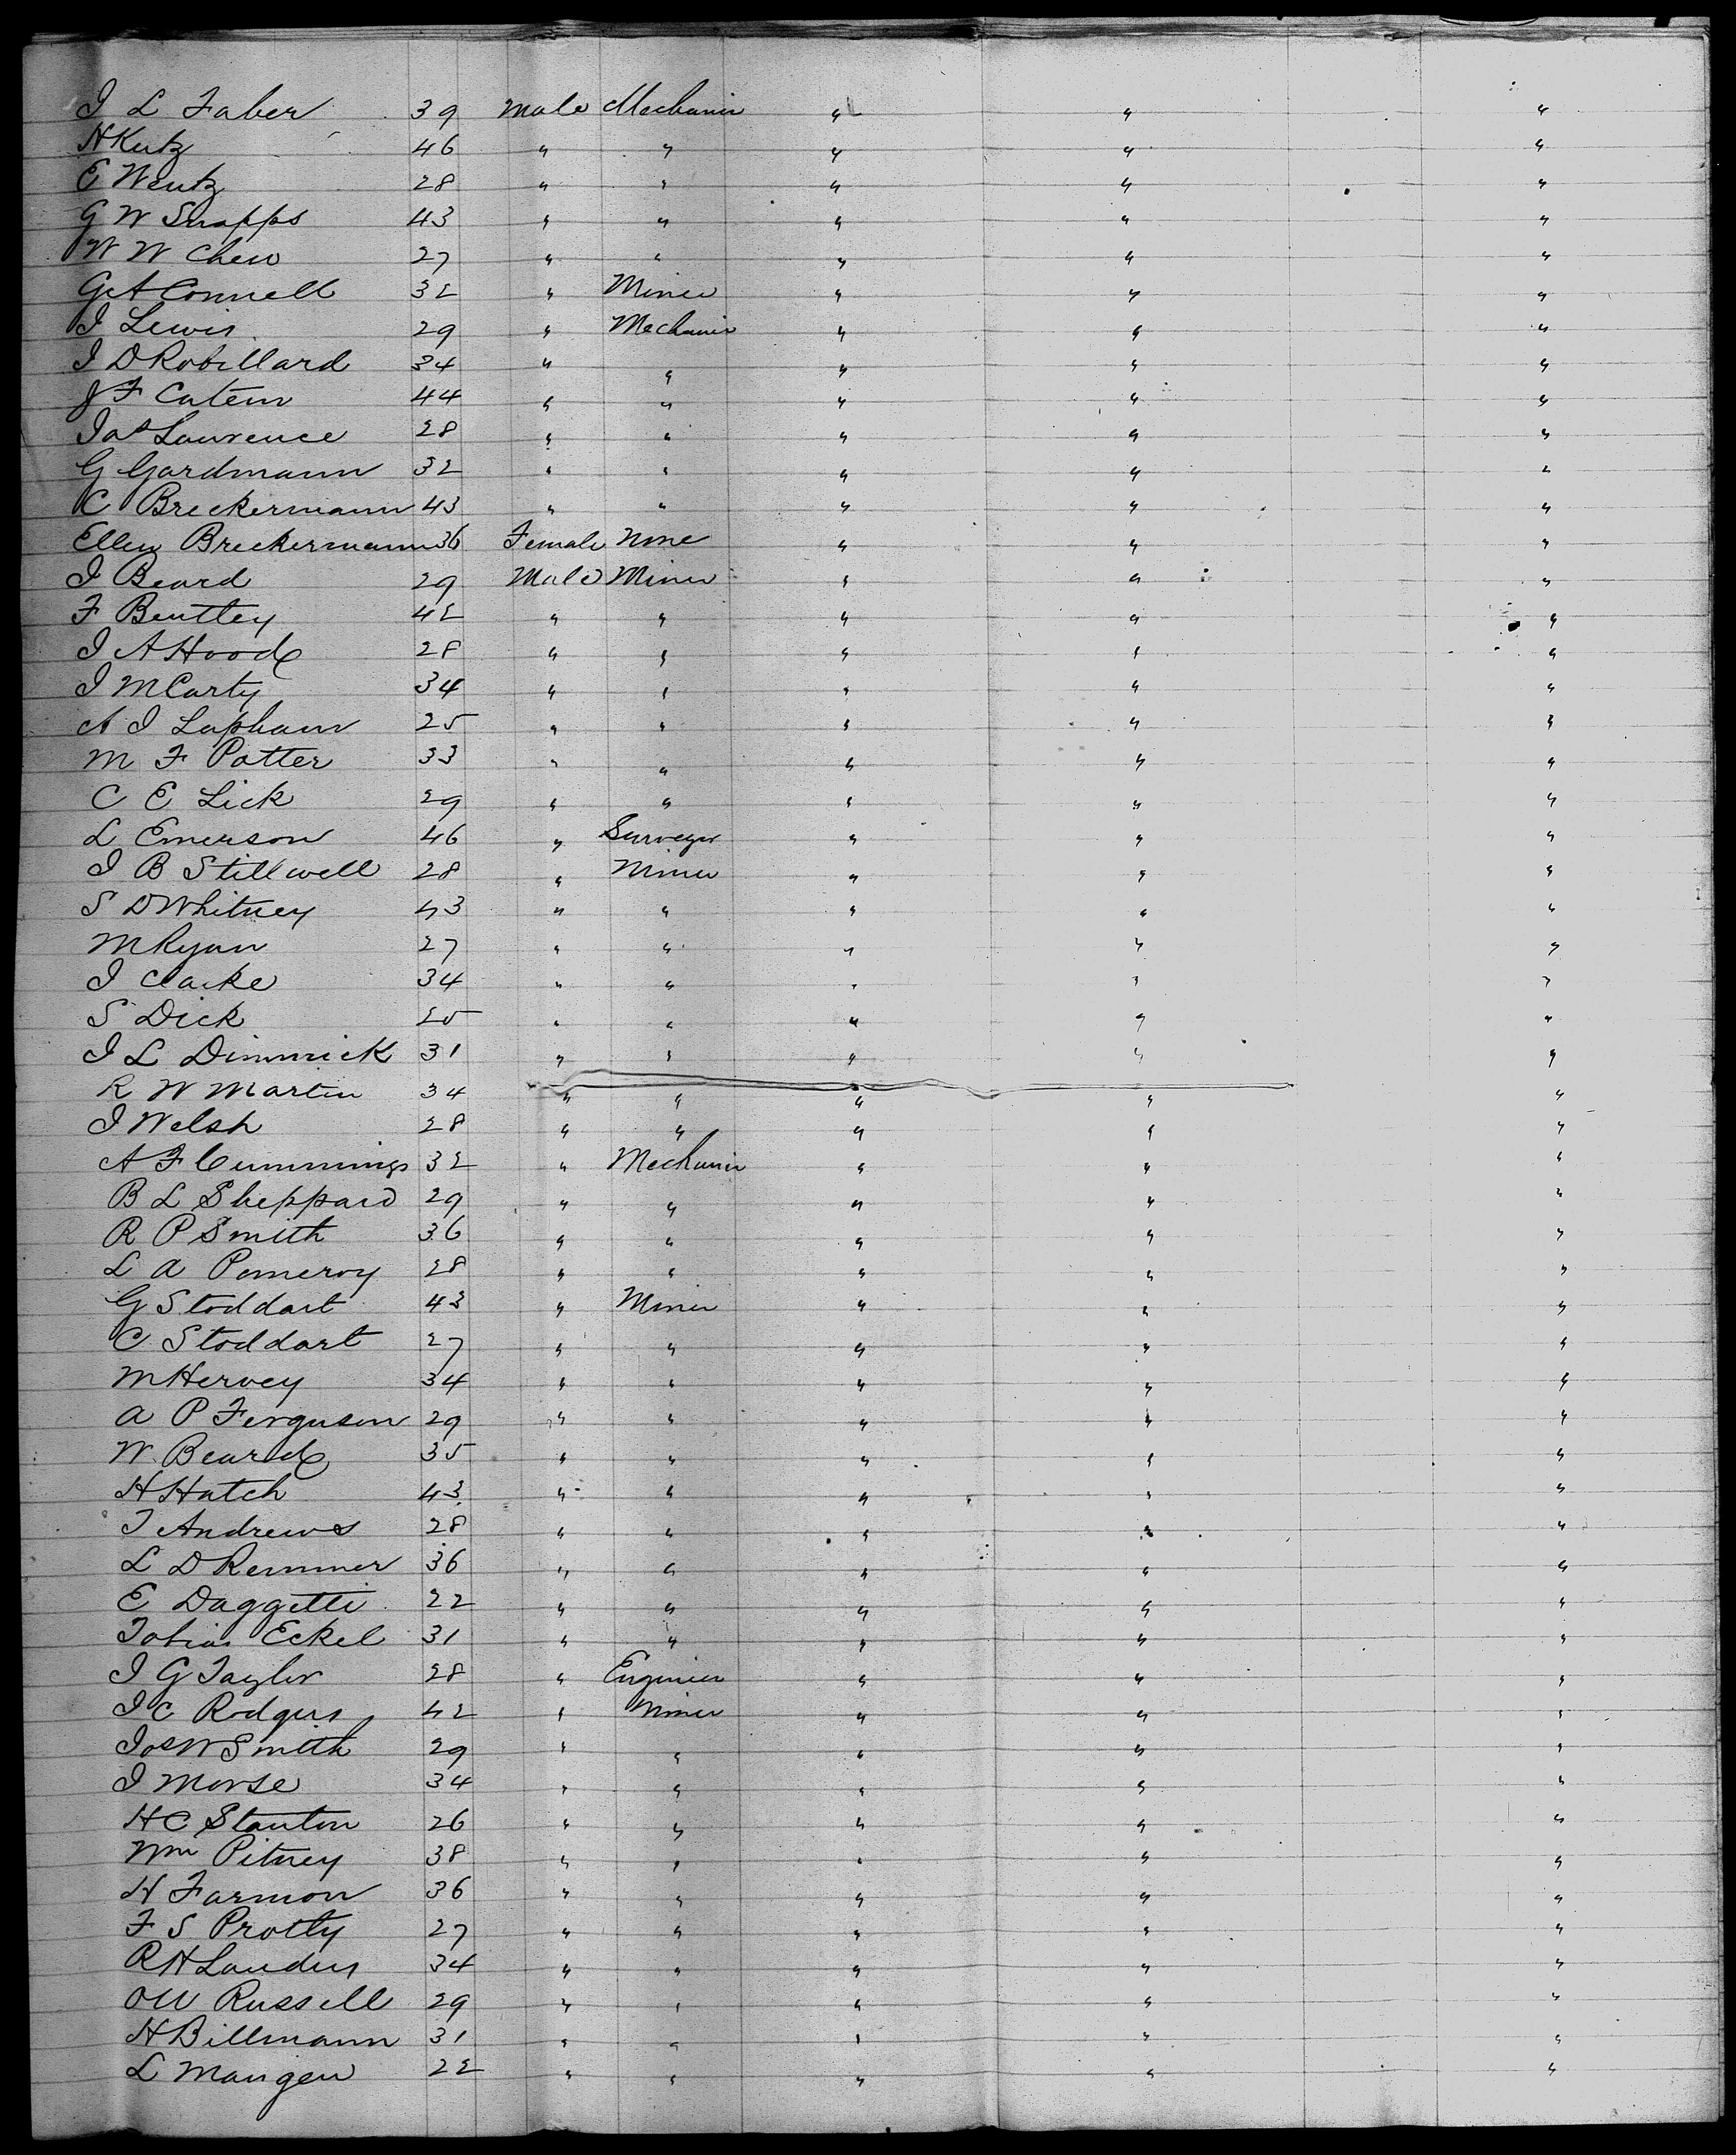 I L Faber 39 Male Mechanic " " "
H Kutz 46 " " " " "
E Wentz 28 " " " " "
G W Snapps 43 " " " " "
W W Chew 27 " " " " "
G A Connell 32 " Miner " " "
I Lewis 29 " Mechanic " " "
I D Robillard 34 " " " " "
J F Catem 44 " " " " "
Jas Lawrence 28 " " " " "
G Gardmann 32 " " " " "
C Breckermann 43 " " " " "
Ellen Breckermann 36 Female None " " "
I Beard 29 Male Miner " " "
F Bentley 42 " " " " "
I A Hood 28 " " " " "
I M Carty 34 " " " " "
A I Lapham 25 " " " " "
M F Potter 33 " " " " "
C E Lick 29 " " " " "
L Emerson 46 " Surveyor " " "
I B Stillwell 28 " Miner " " "
S D Whitney 43 " " " " "
M Ryan 27 " " " " "
I Clarke 34 " " " " "
S Dick 25 " " " " "
I L Dimmick 31 " " " " "
R W Martin 34 " " " " "
I Welsh 28 " " " " "
A F Cummings 32 " Mechanic " " "
B L Sheppard 29 " " " " "
R P Smith 36 " " " " "
L A Pomeroy 28 " " " " "
G Stoddart 43 " Miner " " "
C Stoddart 27 " " " " "
M Hervey 34 " " " " "
A P Ferguson 29 " " " " "
W Beard 35 " " " " "
H Hatch 43 " " " " "
T Andrews 28 " " " " "
L D Remmer 36 " " " " "
E Daggetti 22 " " " " "
Tobias Eckel 31 " " " " "
I G Taylor 28 " Engineer " " "
I C Rodgers 42 " Miner " " "
Jos W Smith 29 " " " " "
I Morse 34 " " " " "
H C Stanton 26 " " " " "
Wm Pitney 38 " " " " "
H Farmon 36 " " " " "
F S Protty 27 " " " " "
R H Landers 34 " " " " "
O W Russell 29 " " " " "
H Billmann 31 " " " " "
L Mangen 22 " " " " "